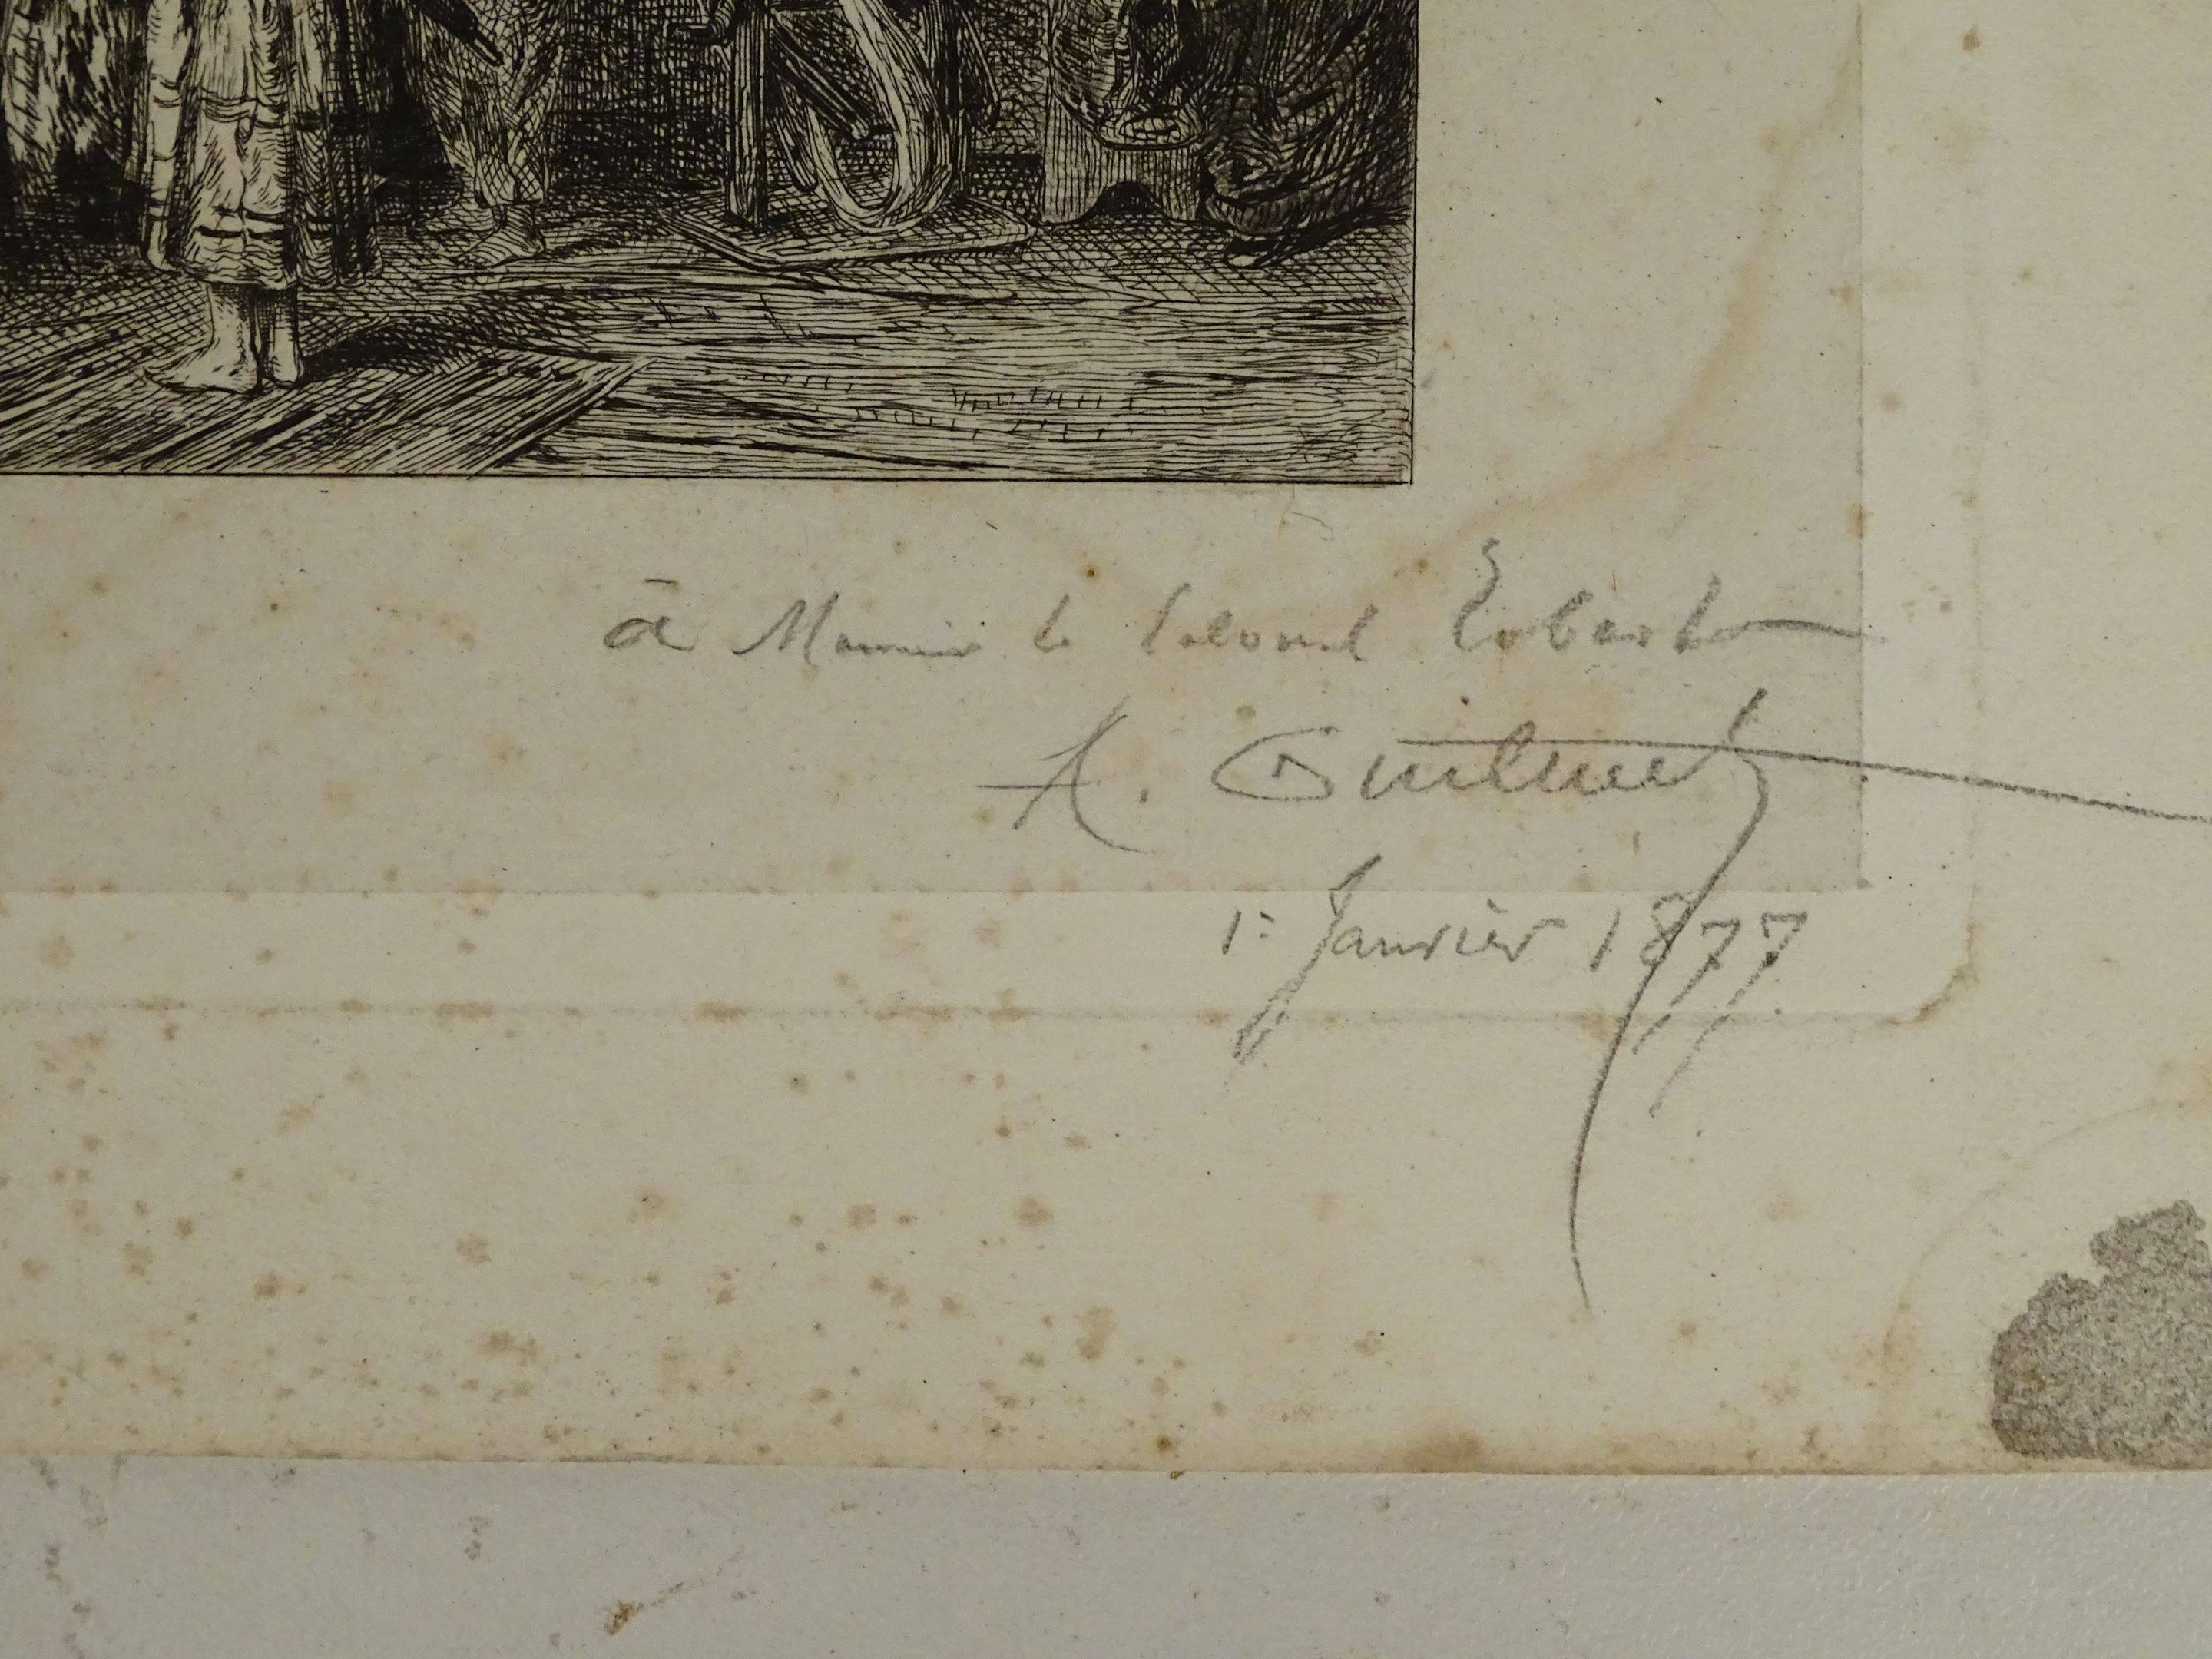 à Monsieur le Colonel Robert
A. Guilmet
1er Janvier 1877